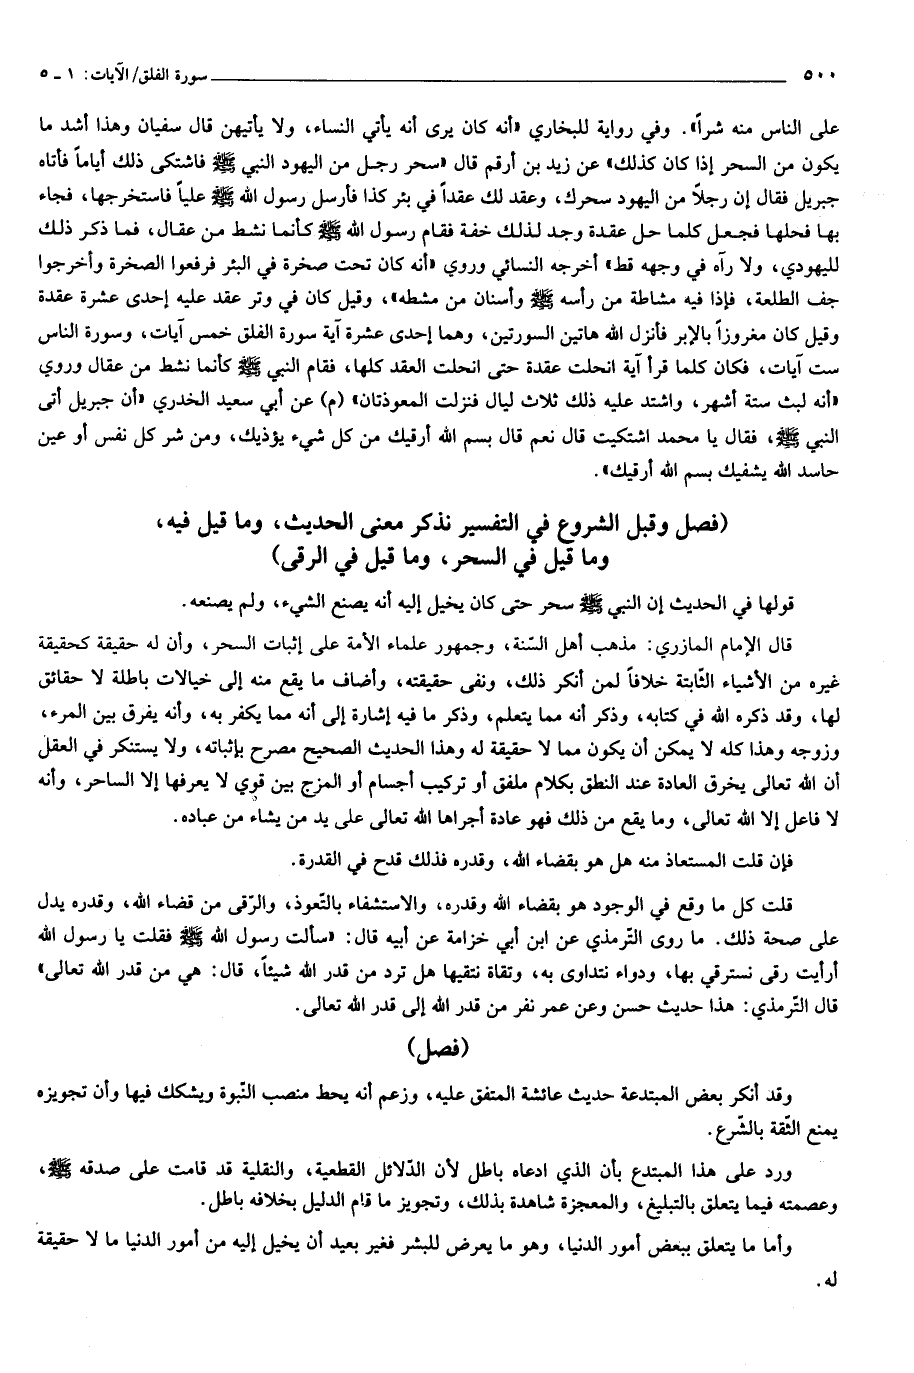 ٥٠٠ سورة الفلق/ الآيات: ١ - ٥
على الناس منه شراً». وفي رواية للبخاري «أنه كان يرى أنه يأتي النساء، ولا يأتيهن قال سفيان وهذا أشد ما
يكون من السحر إذا كان كذلك» عن زيد بن أرقم قال «سحر رجل من اليهود النبي ﷺ فاشتكى ذلك أياماً فأتاه
جبريل فقال إن رجلاً من اليهود سحرك، وعقد لك عقداً في بئر كذا فأرسل رسول الله ﷺ علياً فاستخرجها، فجاء
بها فحلها فجعل كلما حل عقدة وجد لذلك خفة فقام رسول الله ﷺ كأنما نشط من عقال، فما ذكر ذلك
لليهودي، ولا رآه في وجهه قط» أخرجه النسائي وروي «أنه كان تحت صخرة في البئر فرفعوا الصخرة وأخرجوا
جف الطلعة، فإذا فيه مشاطة من رأسه ﷺ وأسنان من مشطه»، وقيل كان في وتر عقد عليه إحدى عشرة عقدة
وقيل كان مغروزاً بالإبر فأنزل الله هاتين السورتين، وهما إحدى عشرة آية سورة الفلق خمس آيات، وسورة الناس
ست آيات، فكان كلما قرأ آية انحلت عقدة حتى انحلت العقد كلها، فقام النبي ﷺ كأنما نشط من عقال وروي
«أنه لبث ستة أشهر، واشتد عليه ذلك ثلاث ليال فنزلت المعوذتان» (م) عن أبي سعيد الخدري «أن جبريل أتى
النبي ﷺ، فقال يا محمد اشتكيت قال نعم قال بسم الله أرقيك من كل شيء يؤذيك، ومن شر كل نفس أو عين
حاسد الله يشفيك بسم الله أرقيك».
(فصل وقبل الشروع في التفسير نذكر معنى الحديث، وما قيل فيه،
وما قيل في السحر، وما قيل في الرقى)
قولها في الحديث إن النبي ﷺ سحر حتى كان يخيل إليه أنه يصنع الشيء، ولم يصنعه.
قال الإمام المازري: مذهب أهل السّنة، وجمهور علماء الأمة على إثبات السحر، وأن له حقيقة كحقيقة
غيره من الأشياء الثّابتة خلافاً لمن أنكر ذلك، ونفى حقيقته، وأضاف ما يقع منه إلى خيالات باطلة لا حقائق
لها، وقد ذكره الله في كتابه، وذكر أنه مما يتعلم، وذكر ما فيه إشارة إلى أنه مما يكفر به، وأنه يفرق بين المرء،
وزوجه وهذا كله لا يمكن أن يكون مما لا حقيقة له وهذا الحديث الصحيح مصرح بإثباته، ولا يستنكر في العقل
أن الله تعالى يخرق العادة عند النطق بكلام ملفق أو تركيب أجسام أو المزج بين قوي لا يعرفها إلا الساحر، وأنه
لا فاعل إلا الله تعالى، وما يقع من ذلك فهو عادة أجراها الله تعالى على يد من يشاء من عباده.
فإن قلت المستعاذ منه هل هو بقضاء الله، وقدره فذلك قدح في القدرة.
قلت كل ما وقع في الوجود هو بقضاء الله وقدره، والاستشفاء بالتّعوذ، والرّقى من قضاء الله، وقدره يدل
على صحة ذلك. ما روى التّرمذي عن ابن أبي خزامة عن أبيه قال: «سألت رسول الله ﷺ فقلت يا رسول الله
أرأيت رقى نسترقي بها، ودواء نتداوى به، وتقاة نتقيها هل ترد من قدر الله شيئاً، قال: هي من قدر الله تعالى»
قال التّرمذي: هذا حديث حسن وعن عمر نفر من قدر الله إلى قدر الله تعالى.
(فصل)
وقد أنكر بعض المبتدعة حديث عائشة المتفق عليه، وزعم أنه يحط منصب النّبوة ويشكك فيها وأن تجويزه
يمنع الثّقة بالشّرع.
ورد على هذا المبتدع بأن الذي ادعاه باطل لأن الدّلائل القطعية، والنقلية قد قامت على صدقه ﷺ،
وعصمته فيما يتعلق بالتبليغ، والمعجزة شاهدة بذلك، وتجويز ما قام الدليل بخلافه باطل.
وأما ما يتعلق ببعض أمور الدنيا، وهو ما يعرض للبشر فغير بعيد أن يخيل إليه من أمور الدنيا ما لا حقيقة
له.